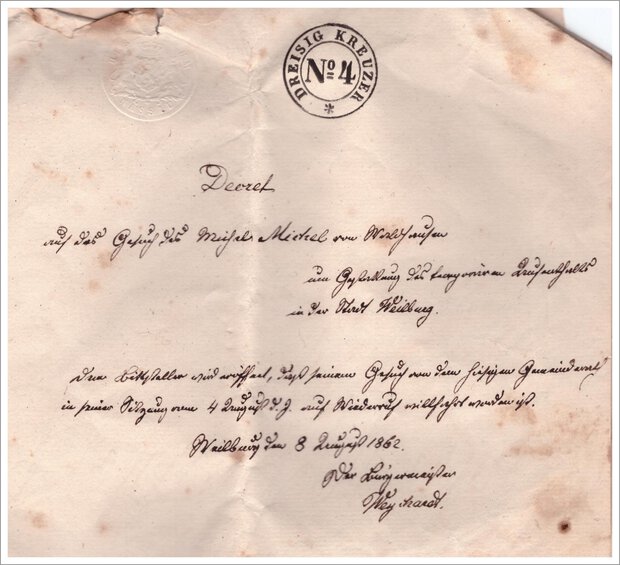 DREISIG KREUZER
No 4
Decret
auf das Gesuch des Michel Michel von Waldhausen
um Gestattung des temporären Aufenthalts
in der Stadt Weilburg.
Dem Bittsteller wird eröffnet, daß seinem Gesuch von dem hiesigen Gemeinderat
in seiner Sitzung vom 4 August d. J. auf Widerruf willfahrt worden ist.
Weilburg den 8 August 1862.
Der Bürgermeister